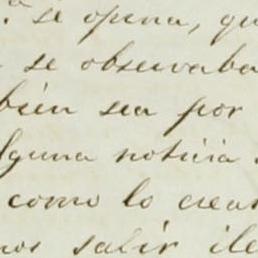 se opina, qu
se observaba
bien sea por
lguna noticia
como lo crea
nos salir ile